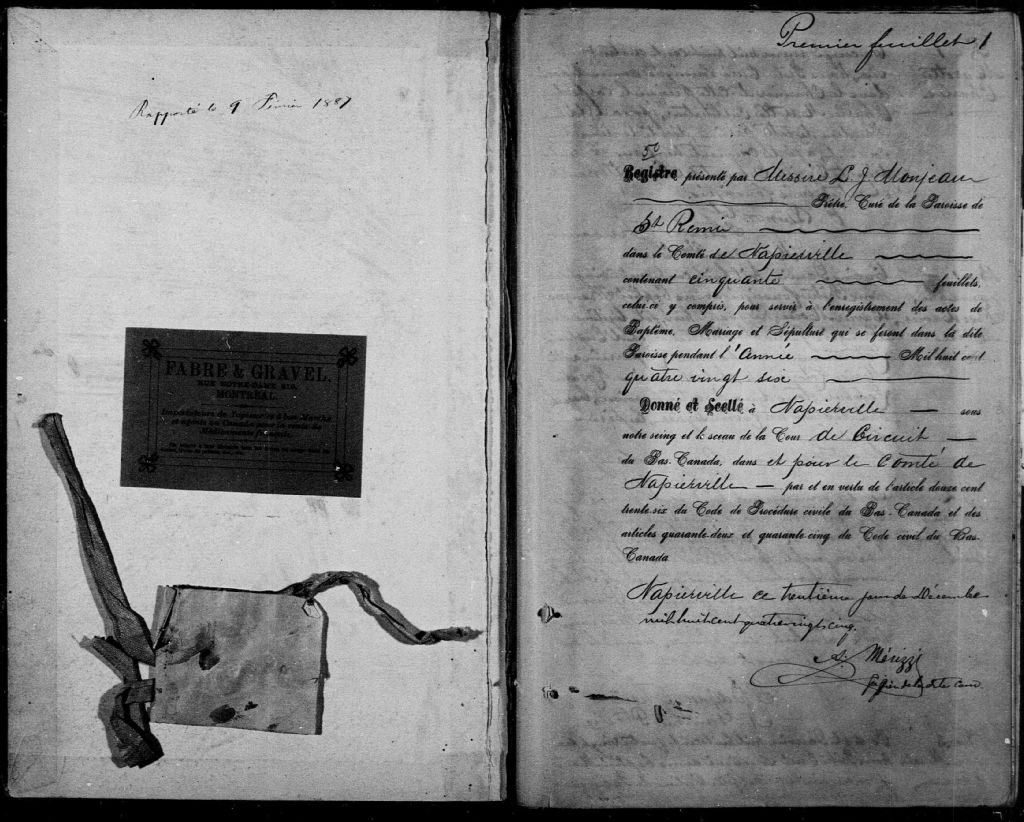 Rapporté le 9 Février 1887
FABRE & GRAVEL,
RUE NOTRE-DAME 219,
MONTREAL.
Premier feuillet 1
50
Registre présenté par Messire L. J. Monjeau
Prêtre, Curé de la Paroisse de
St Remi
dans le Comté de Napierville
contenant cinquante feuillets,
celui-ci y compris, pour servir à l'enregistrement des actes de
Baptême, Mariage et Sépulture qui se feront dans la dite
Paroisse pendant l'Année Mil huit cent
quatre vingt six
Donné et Scellé à Napierville sous
notre seing et le sceau de la Cour de Circuit
du Bas-Canada, dans et pour le Comté de
Napierville par et en vertu de l'article douze cent
trente-six du Code de Procédure civile du Bas-Canada et des
articles quarante-deux et quarante-cinq du Code civil du Bas-
Canada
Napierville ce trentième jour de Décembre
mil huit cent quatre vingt cinq.
A. Mérizzi
Greffier de la dite Cour